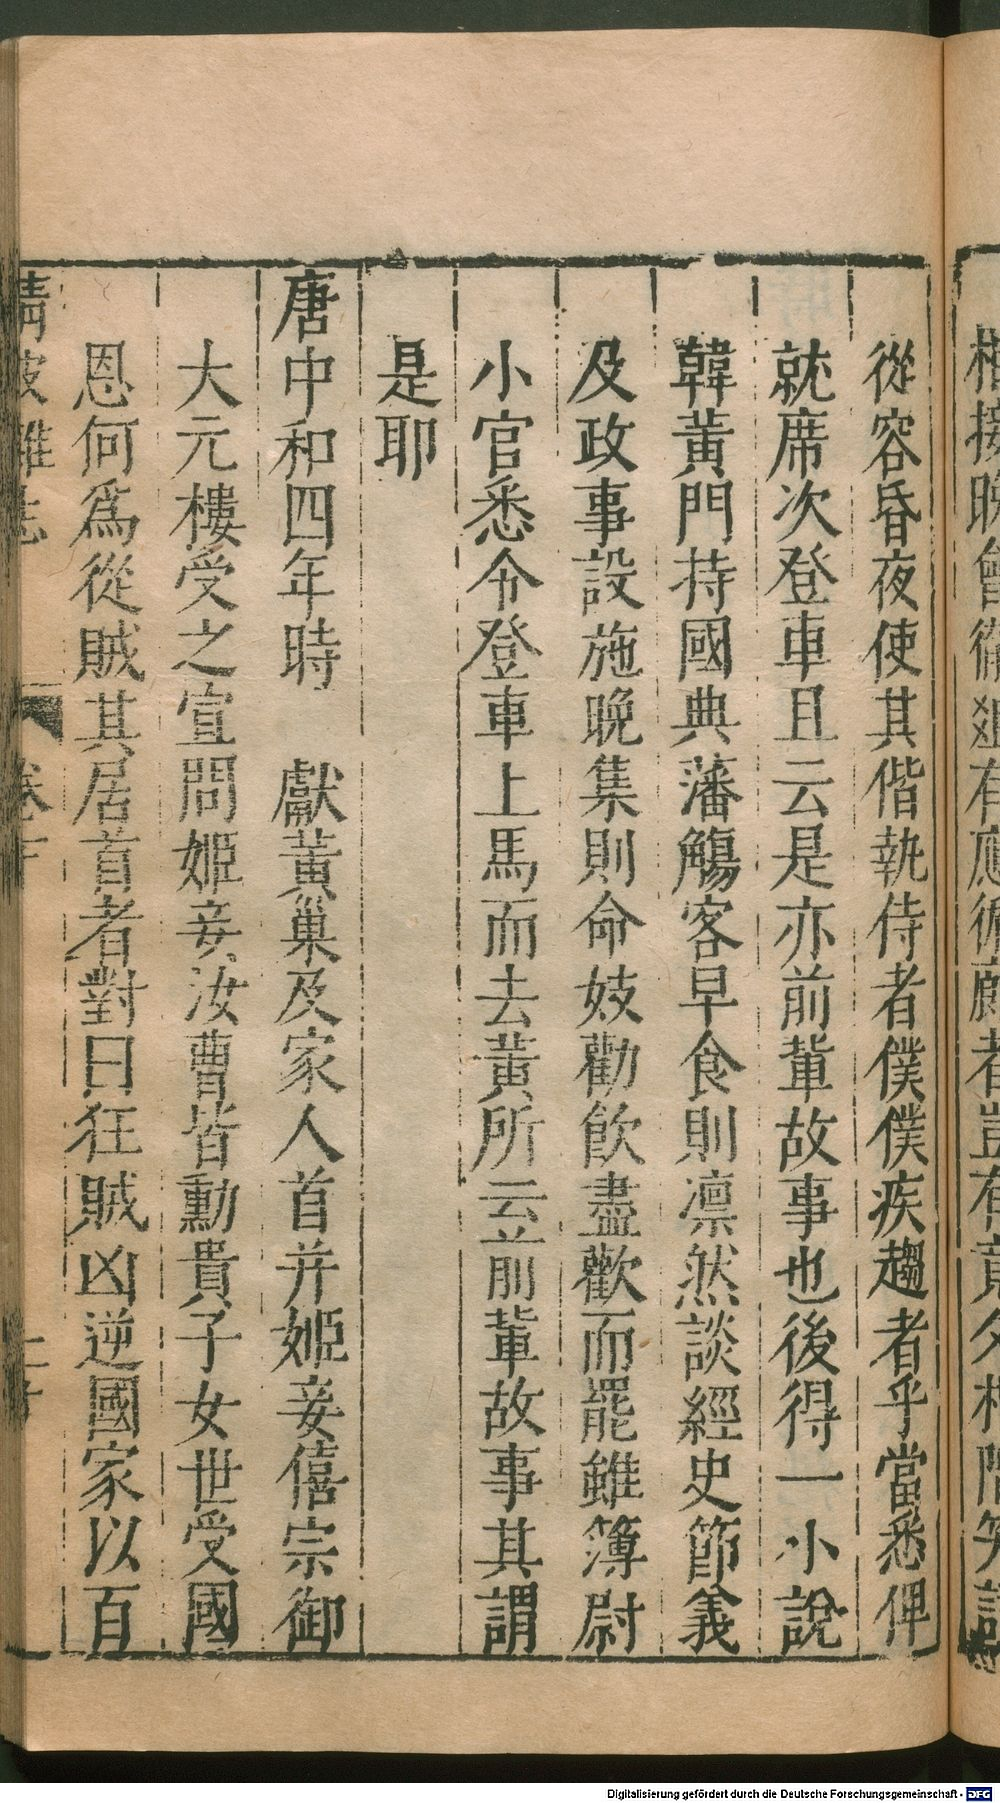 從容昏夜使其偕執侍者僕僕疾趨者乎當悉俾
就席次登車且云是亦前軰故事也後得一小說
韓黃門持國典藩觴客早食則凛然談經史節義
及政事設施晚集則命妓勸飲盡歡而罷雖簿尉
小官悉令登車上馬而去黃所云前軰故事其謂
是耶
唐中和四年時　獻黃巢及家人首并姬妾僖宗御
大元樓受之宣問姬妾汝曹皆勳貴子女世受國
恩何爲從賊其居首者對曰狂賊凶逆國家以百
清波雜志
卷下
Digitalisierung gefördert durch die Deutsche Forschungsgemeinschaft - DFG